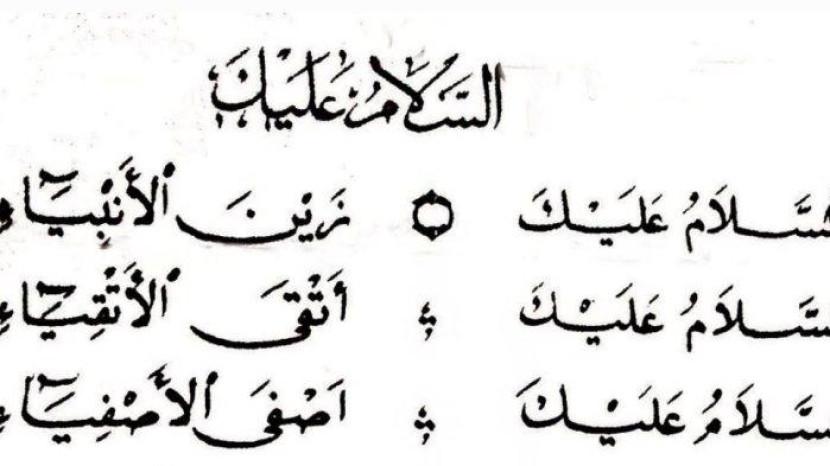 السَّلَامُ عَلَيْكَ
السَّلَامُ عَلَيْكَ زَيْنَ الْأَنْبِيَآءِ
السَّلَامُ عَلَيْكَ أَتْقَى الْأَتْقِيَآءِ
السَّلَامُ عَلَيْكَ اَصْفَى الْأَصْفِيَآءِ